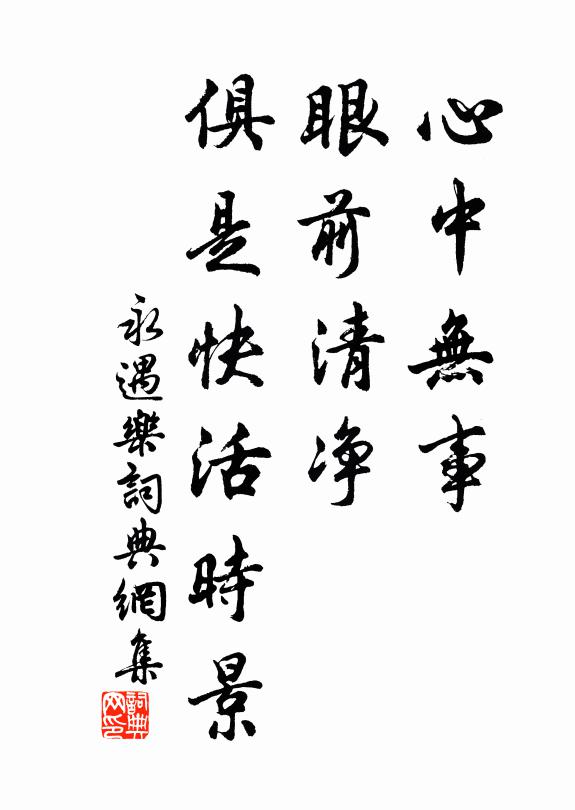 心中無事
眼前清净
俱是快活時景
永遇樂詞典網集
詞典网印